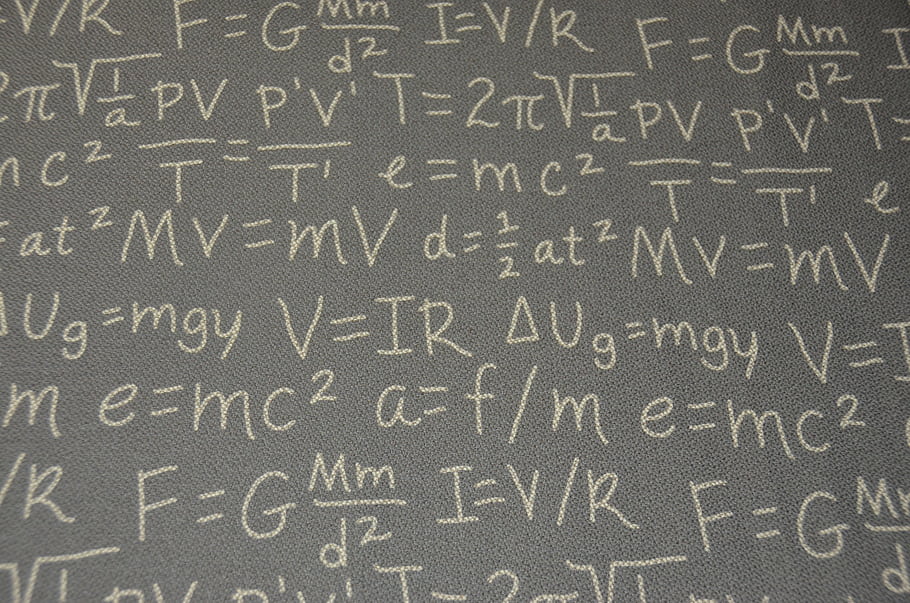 V/R F=G Mm/d² I=V/R F=G Mm/d² I
2π√1/a PV/T = P'V'/T' T=2π√1/a PV/T = P'V'/T' T=
mc² e=mc² e
=at² MV=mV d=½at² MV=mV
ΔUg=mgy V=IR ΔUg=mgy V=I
m e=mc² a=f/m e=mc²
/R F=G Mm/d² I=V/R F=G Mm/d
√1 PV P'V' T=2π√1 PV P'V'